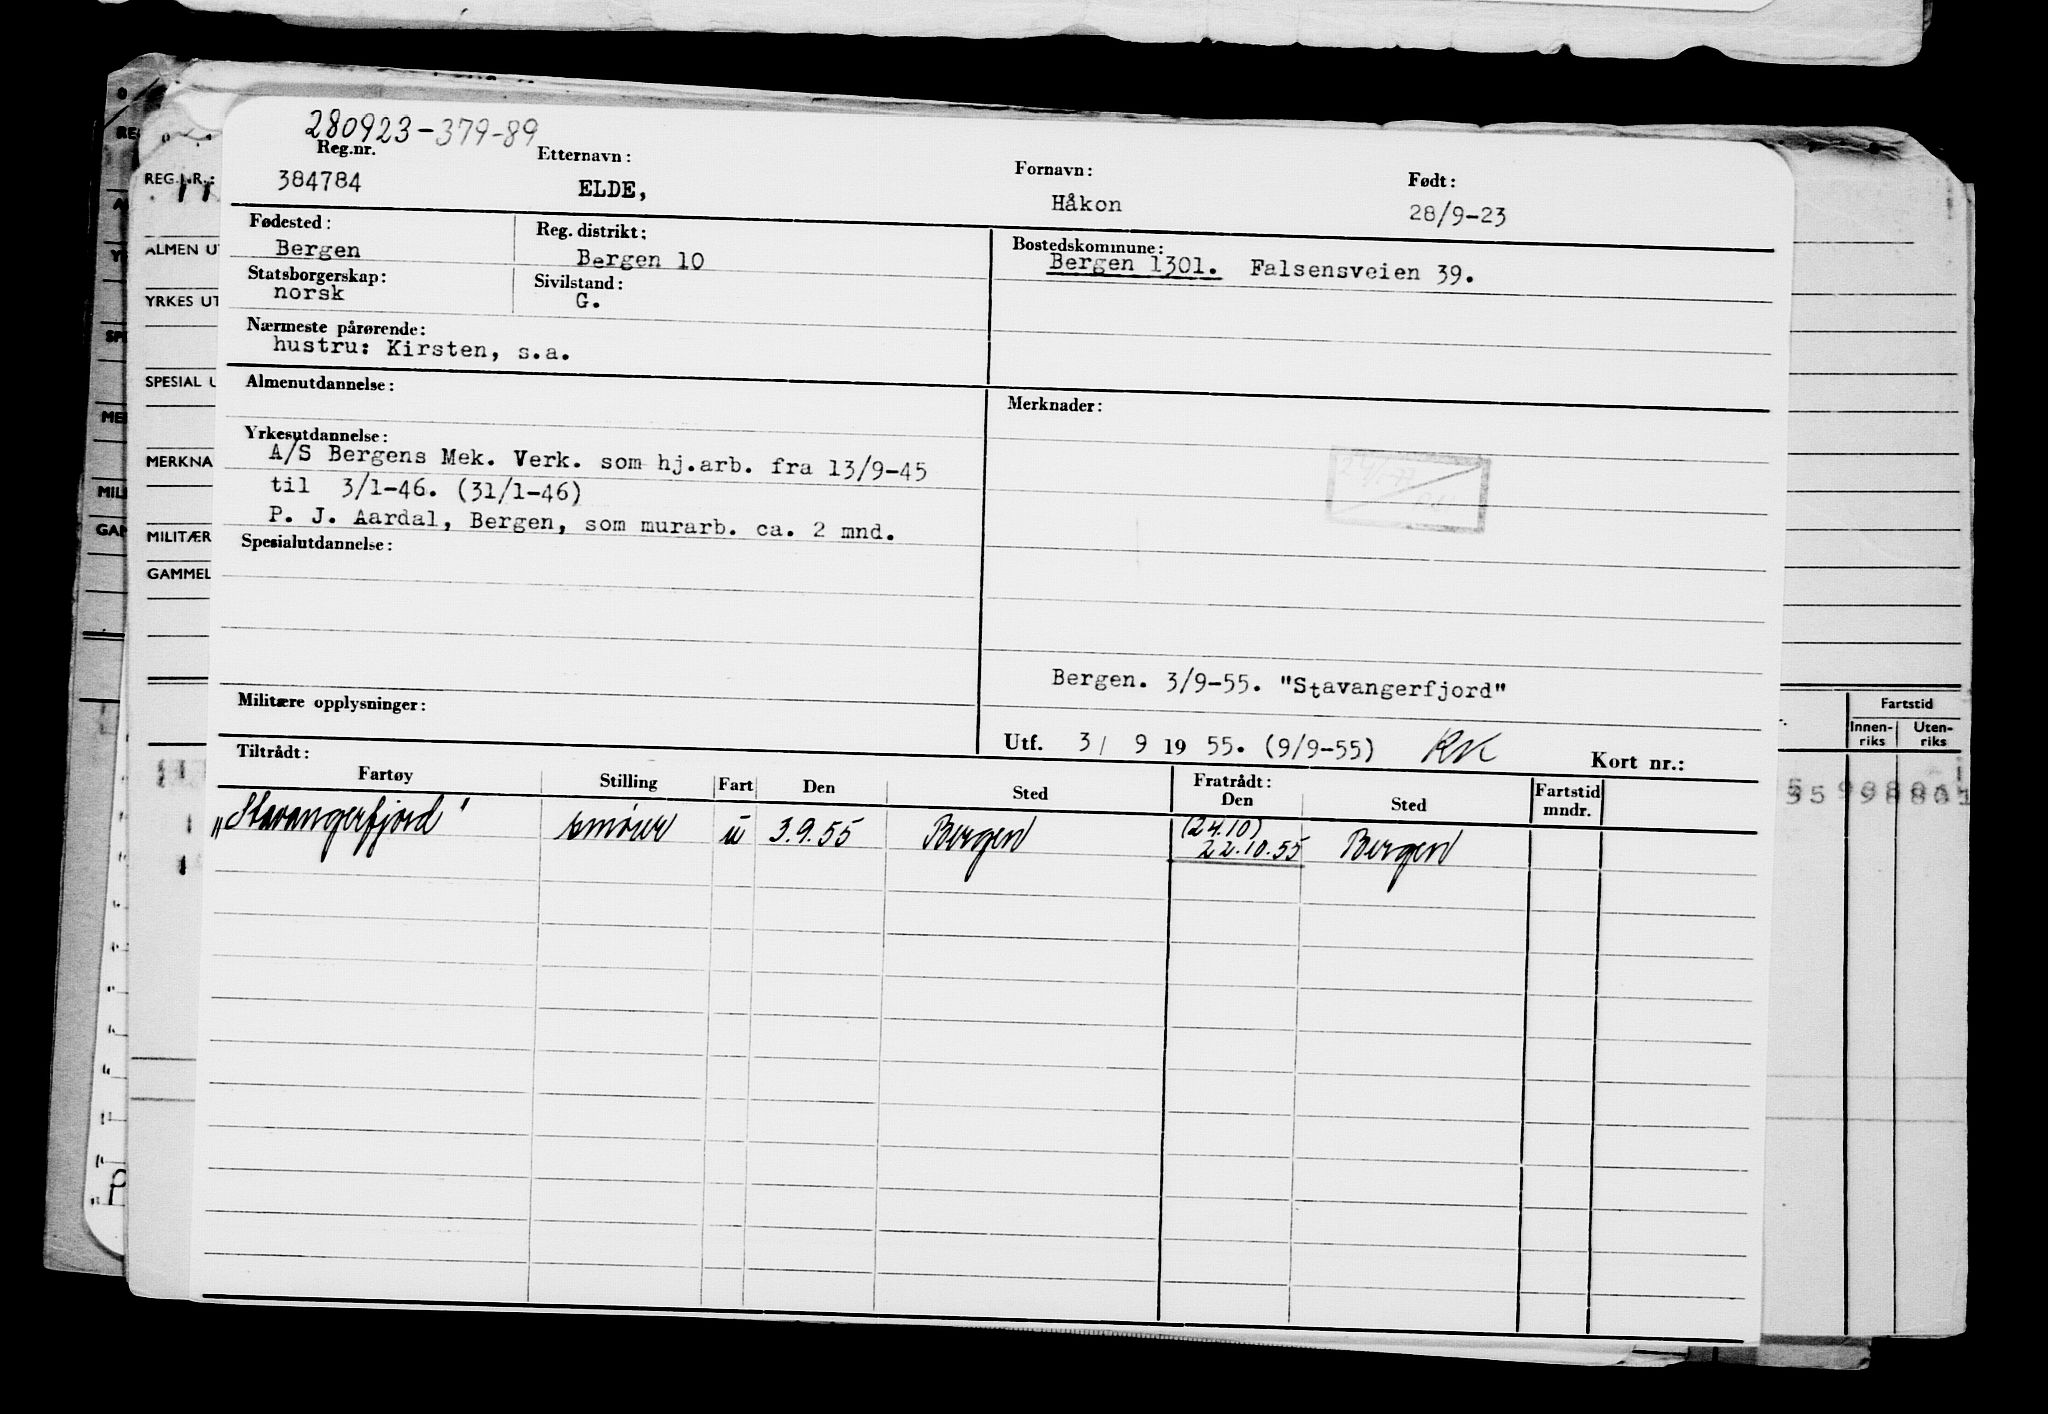 280923-379-89
Reg.nr. Etternavn: Fornavn: Født:
384784 ELDE, Håkon 28/9-23
Fødested: Reg. distrikt: Bostedskommune:
Bergen Bergen 10 Bergen 1301. Falsensveien 39.
Statsborgerskap: Sivilstand:
norsk G.
Nærmeste pårørende:
hustru: Kirsten, s.a.
Almenutdannelse: Merknader:
Yrkesutdannelse:
A/S Bergens Mek. Verk. som hj.arb. fra 13/9-45
til 3/1-46. (31/1-46)
P. J. Aardal, Bergen, som murarb. ca. 2 mnd.
Spesialutdannelse:
Bergen. 3/9-55. "Stavangerfjord"
Militære opplysninger:
Utf. 3/ 9 19 55. (9/9-55) RK Kort nr.:
Tiltrådt: Fratrådt:
Fartøy Stilling Fart Den Sted Den Sted Fartstid mndr.
(24.10)
„Stavangerfjord" smører u 3.9.55 Bergen 22.10.55 Bergen
REG.NR.:
ALMEN UT
YRKES UT
SPESIAL U
MERKNA
MILITÆR
GAMMEL
Fartstid
Innen-
riks
Uten-
riks